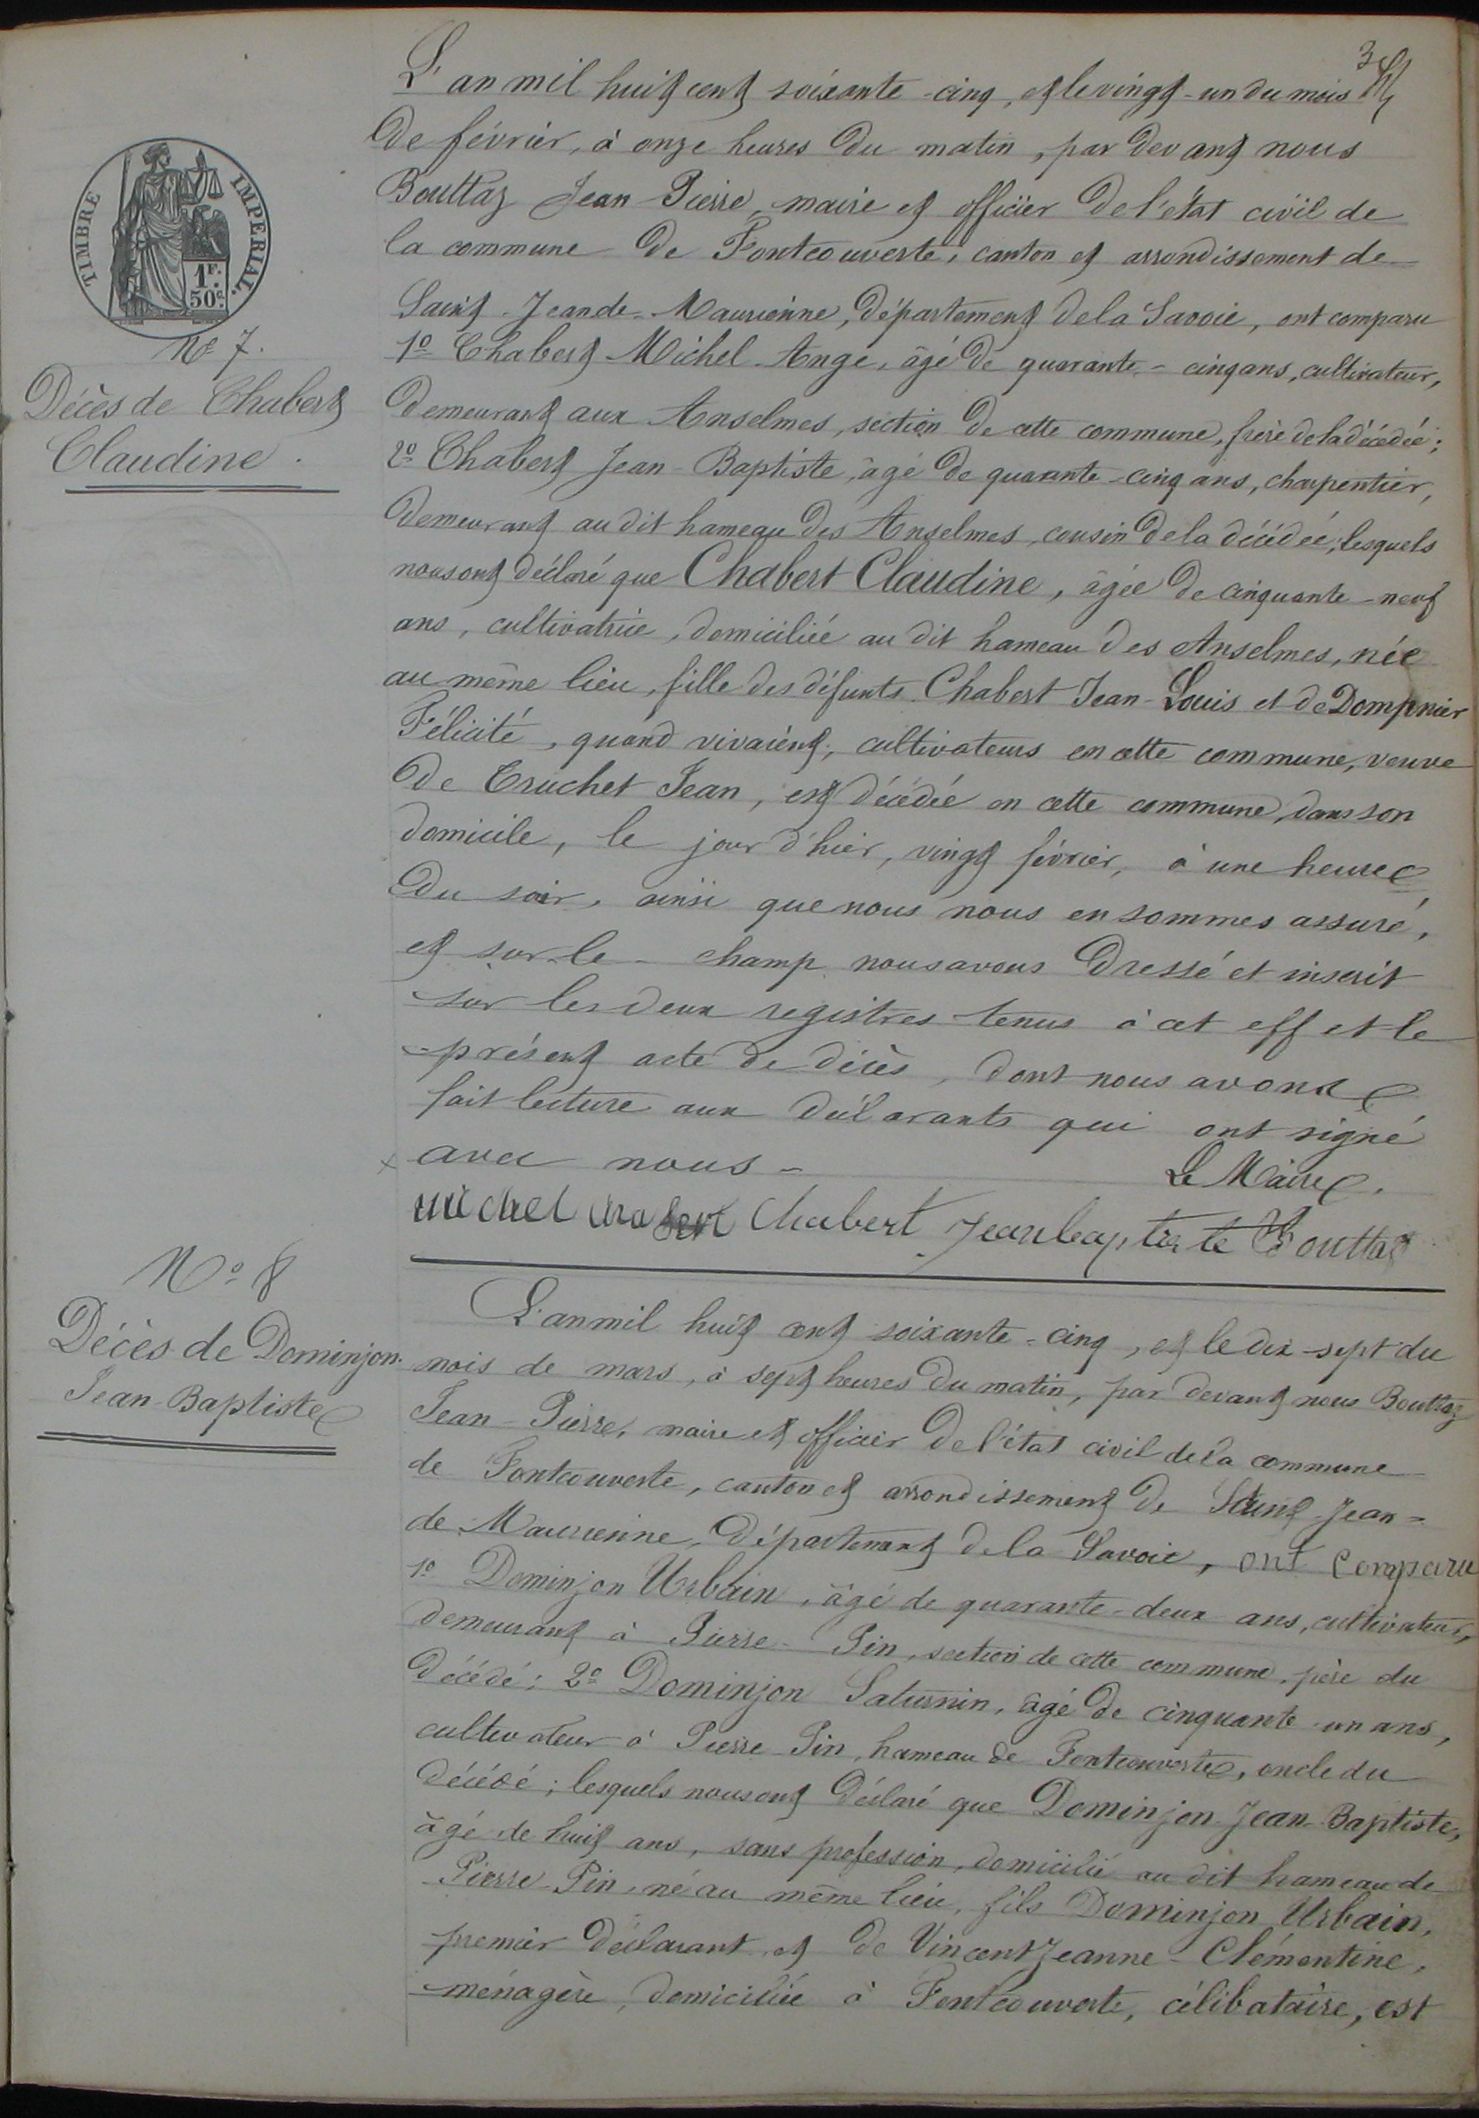 3
L'an mil huit cent soixante-cinq, et le vingt-un du mois
de février, à onze heures du matin, par devant nous
Bouttaz Jean-Pierre, maire et officier de l'état civil de
la commune de Fontcouverte, canton et arrondissement de
Saint-Jean-de-Maurienne, département de la Savoie, ont comparu
1º Chabert Michel-Ange, âgé de quarante-cinq ans, cultivateur,
demeurant aux Anselmes, section de cette commune, frère de la décédée;
2º Chabert Jean-Baptiste, âgé de quarante-cinq ans, charpentier,
demeurant au dit hameau des Anselmes, cousin de la décédée; lesquels
nous ont déclaré que Chabert Claudine, âgée de cinquante-neuf
ans, cultivatrice, domiciliée au dit hameau des Anselmes, née
au même lieu, fille des défunts Chabert Jean-Louis et de Dompnier
Félicité, quand vivaient, cultivateurs en cette commune, veuve
de Truchet Jean, est décédée en cette commune, dans son
domicile, le jour d'hier, vingt février, à une heure
du soir, ainsi que nous nous en sommes assuré,
et sur-le-champ nous avons dressé et inscrit
sur les deux registres tenus à cet effet le
présent acte de décès, dont nous avons
fait lecture aux déclarants qui ont signé
avec nous -
Le Maire.
michel chabert Chabert Jean baptiste Bouttaz
TIMBRE IMPERIAL.
1F.
50c.
Nº 7.
Décès de Chabert
Claudine.
Nº 8
Décès de Dominjon
Jean-Baptiste
L'an mil huit cent soixante-cinq, et le dix-sept du
mois de mars, à sept heures du matin, par devant nous Bouttaz
Jean-Pierre, maire et officier de l'état civil de la commune
de Fontcouverte, canton et arrondissement de Saint-Jean-
de-Maurienne, département de la Savoie, ont comparu
1º Dominjon Urbain, âgé de quarante-deux ans, cultivateur,
demeurant à Pierre-Pin, section de cette commune, père du
décédé; 2º Dominjon Saturnin, âgé de cinquante-un ans,
cultivateur à Pierre-Pin, hameau de Fontcouverte, oncle du
décédé; lesquels nous ont déclaré que Dominjon Jean-Baptiste,
âgé de huit ans, sans profession, domicilié au dit hameau de
Pierre-Pin, né au même lieu, fils Dominjon Urbain,
premier déclarant et de Vincent Jeanne-Clémentine,
ménagère, domiciliée à Fontcouverte, célibataire, est